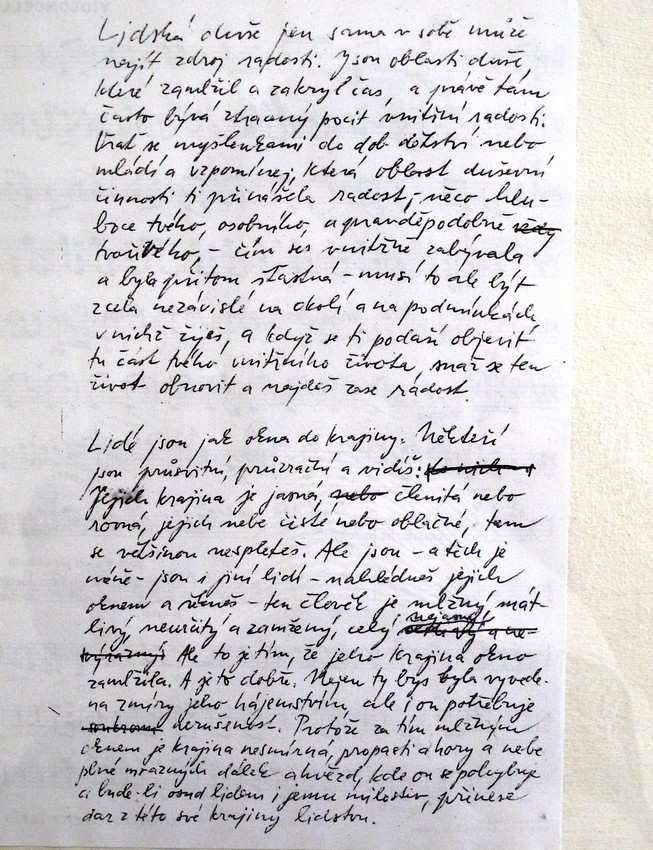 VIOLONCELL
Lidská duše jen sama v sobě může
najít zdroj radosti. Jsou oblasti duše,
které zamlžil a zakryl čas, a právě tam
často bývá ztracený pocit vnitřní radosti.
Vrať se myšlenkami do dob dětství nebo
mládí a vzpomínej, která oblast duševní
činnosti ti přinášela radost, – něco hlu-
boce tvého, osobního, a pravděpodobně vždy
tvořivého, – čím ses vnitřně zabývala
a byla přitom šťastná – musí to ale být
zcela nezávislé na okolí a na podmínkách
v nichž žiješ, a když se ti podaří objevit
tu část tvého vnitřního života, snaž se ten
život obnovit a najdeš zase radost.
Lidé jsou jak okna do krajiny. Někteří
jsou průsvitní, průzrační a vidíš: do nich
Jejich krajina je jasná, nebo členitá nebo
rovná, jejich nebe čisté nebo oblačné, tam
se většinou nespleteš. Ale jsou – a těch je
méně – jsou i jiní lidí – nahlédneš jejich
oknem a řekneš – ten člověk je mlžný, mát-
livý, neurčitý a zamžený, celý nejasný a ne-
výrazný. Ale to je tím, že jeho krajina okno
zamlžila. A je to dobře. Nejen ty bys byla vyvede-
na z míry jeho tajemstvím, ale i on potřebuje
soukromí nerušenost. Protože za tím mlžným
oknem je krajina nesmírná, propasti a hory a nebe
plné mrazných dálek a hvězd, kde on se pohybuje
a bude-li osud lidem i jemu milostiv, přinese
dar z této své krajiny lidstvu.